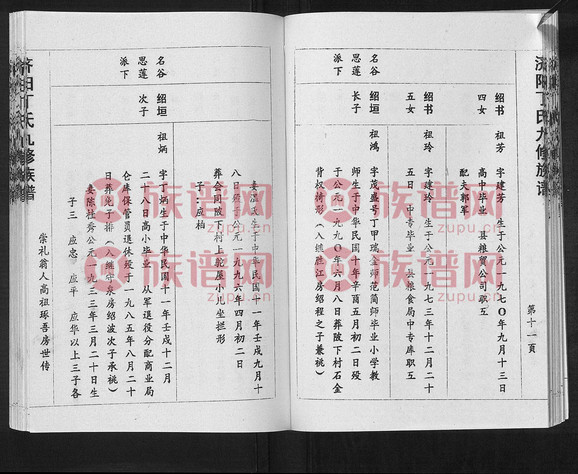 济阳丁氏九修族谱
第十一頁
绍书 四女
祖芳
字建芳 生于公元一九七〇年九月十三日
高中毕业 县粮贸公司职工
配夫郭军
绍书 五女
祖玲
字建玲 生于公元一九七三年十二月二十
五日 中专毕业 县粮食局中专库职工
名谷 思莲 派下
绍垣 长子
祖鸿
字茂盛号丁甲 瑞金师范简师毕业小学教
师生于中华民国十年辛酉五月初二日殁
于公元一九九〇年六月八日葬陂下村石金
背奴椅形（入继胜江房绍程之子兼祧）
妻温 生于中华民国十一年壬戌九月十
八日殁于公元一九九六年四月初二日
葬会同陂下村上乾屋小儿坐挺形
子：应柏
名谷 思莲 派下
绍垣 次子
祖炳
字丁炳生于中华民国十一年壬戌十二月
二八日高小毕业 从军退役分配商业局
仓库保管员退休殁于一九八五年八月二十
日葬先子排（入继守泉房绍波次子承祧）
妻陈桂秀公元一九三三年三月二十日生
子三 应忠 应平 应华以上三子各
崇礼翁人高祖琢吾房世传
济阳丁氏九修族谱
族谱网
zupu.cn
族谱网
zupu.cn
族谱网
zupu.cn
族谱网
zupu.cn